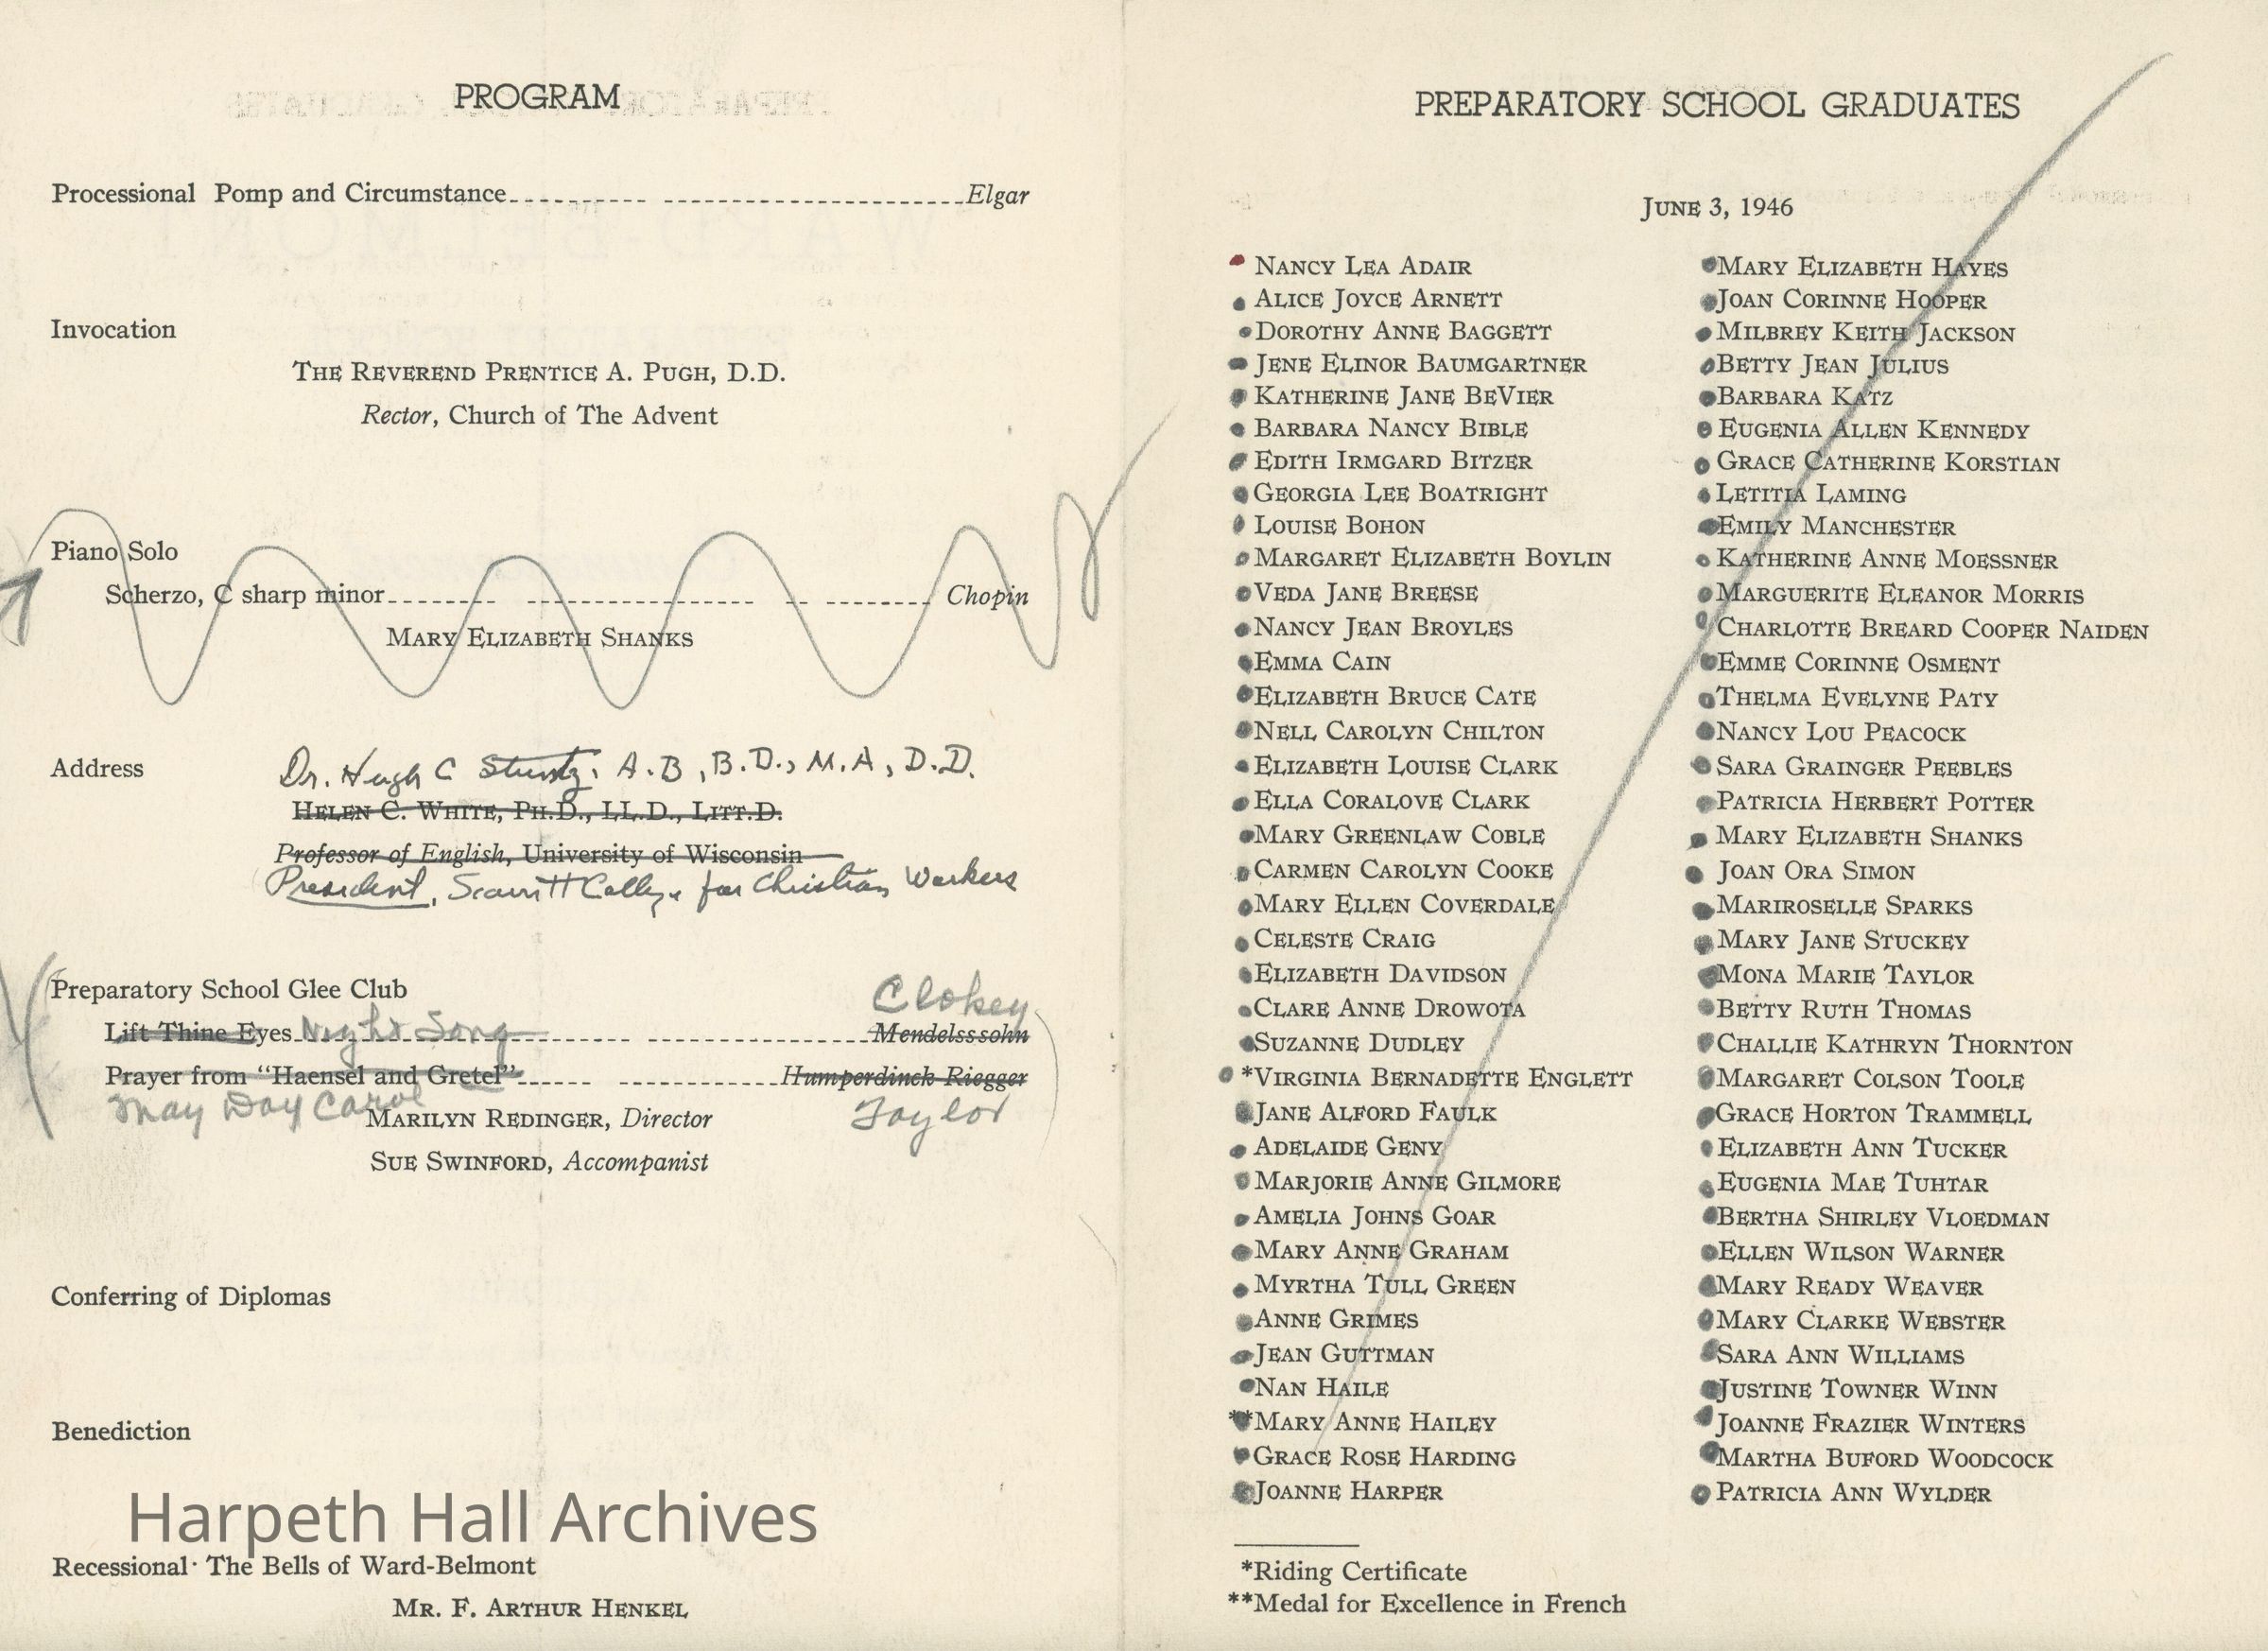 PROGRAM
Processional Pomp and Circumstance Elgar
Invocation
THE REVEREND PRENTICE A. PUGH, D.D.
Rector, Church of The Advent
Piano Solo
Scherzo, C sharp minor Chopin
MARY ELIZABETH SHANKS
Address
Dr. Hugh C Stuntz, A.B, B.D., M.A, D.D.
HELEN C. WHITE, PH.D., LL.D., LITT.D.
Professor of English, University of Wisconsin
President, Scarritt College for Christian Workers
Preparatory School Glee Club
Clokey
Lift Thine Eyes Night Song Mendelsssohn
Prayer from "Haensel and Gretel" Humperdinck-Riegger
May Day Carol Taylor
MARILYN REDINGER, Director
SUE SWINFORD, Accompanist
Conferring of Diplomas
Benediction
Harpeth Hall Archives
Recessional The Bells of Ward-Belmont
MR. F. ARTHUR HENKEL
PREPARATORY SCHOOL GRADUATES
JUNE 3, 1946
NANCY LEA ADAIR
ALICE JOYCE ARNETT
DOROTHY ANNE BAGGETT
JENE ELINOR BAUMGARTNER
KATHERINE JANE BEVIER
BARBARA NANCY BIBLE
EDITH IRMGARD BITZER
GEORGIA LEE BOATRIGHT
LOUISE BOHON
MARGARET ELIZABETH BOYLIN
VEDA JANE BREESE
NANCY JEAN BROYLES
EMMA CAIN
ELIZABETH BRUCE CATE
NELL CAROLYN CHILTON
ELIZABETH LOUISE CLARK
ELLA CORALOVE CLARK
MARY GREENLAW COBLE
CARMEN CAROLYN COOKE
MARY ELLEN COVERDALE
CELESTE CRAIG
ELIZABETH DAVIDSON
CLARE ANNE DROWOTA
SUZANNE DUDLEY
*VIRGINIA BERNADETTE ENGLETT
JANE ALFORD FAULK
ADELAIDE GENY
MARJORIE ANNE GILMORE
AMELIA JOHNS GOAR
MARY ANNE GRAHAM
MYRTHA TULL GREEN
ANNE GRIMES
JEAN GUTTMAN
NAN HAILE
**MARY ANNE HAILEY
GRACE ROSE HARDING
JOANNE HARPER
MARY ELIZABETH HAYES
JOAN CORINNE HOOPER
MILBREY KEITH JACKSON
BETTY JEAN JULIUS
BARBARA KATZ
EUGENIA ALLEN KENNEDY
GRACE CATHERINE KORSTIAN
LETITIA LAMING
EMILY MANCHESTER
KATHERINE ANNE MOESSNER
MARGUERITE ELEANOR MORRIS
CHARLOTTE BREARD COOPER NAIDEN
EMME CORINNE OSMENT
THELMA EVELYNE PATY
NANCY LOU PEACOCK
SARA GRAINGER PEEBLES
PATRICIA HERBERT POTTER
MARY ELIZABETH SHANKS
JOAN ORA SIMON
MARIROSELLE SPARKS
MARY JANE STUCKEY
MONA MARIE TAYLOR
BETTY RUTH THOMAS
CHALLIE KATHRYN THORNTON
MARGARET COLSON TOOLE
GRACE HORTON TRAMMELL
ELIZABETH ANN TUCKER
EUGENIA MAE TUHTAR
BERTHA SHIRLEY VLOEDMAN
ELLEN WILSON WARNER
MARY READY WEAVER
MARY CLARKE WEBSTER
SARA ANN WILLIAMS
JUSTINE TOWNER WINN
JOANNE FRAZIER WINTERS
MARTHA BUFORD WOODCOCK
PATRICIA ANN WYLDER
*Riding Certificate
**Medal for Excellence in French